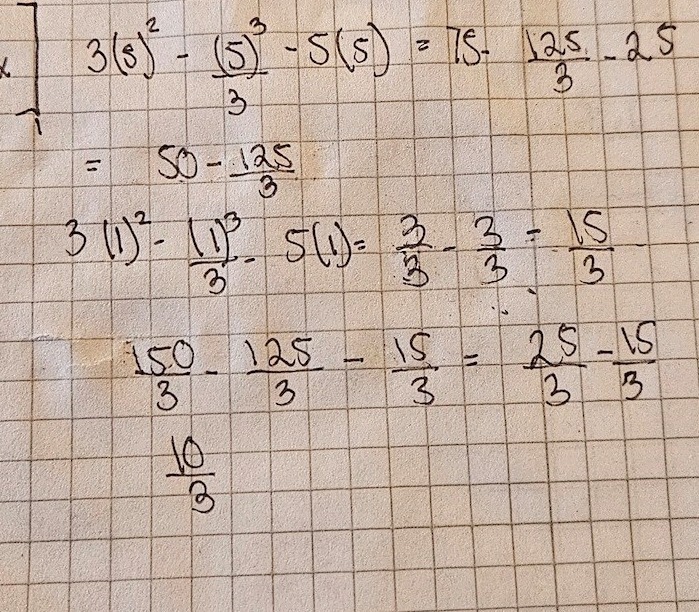 x ]₁ 3(5)² - (5)³/3 - 5(5) = 75 - 125/3 - 25
= 50 - 125/3
3(1)² - (1)³/3 - 5(1) = 3/3 - 3/3 = 15/3
150/3 - 125/3 - 15/3 = 25/3 - 15/3
10/3